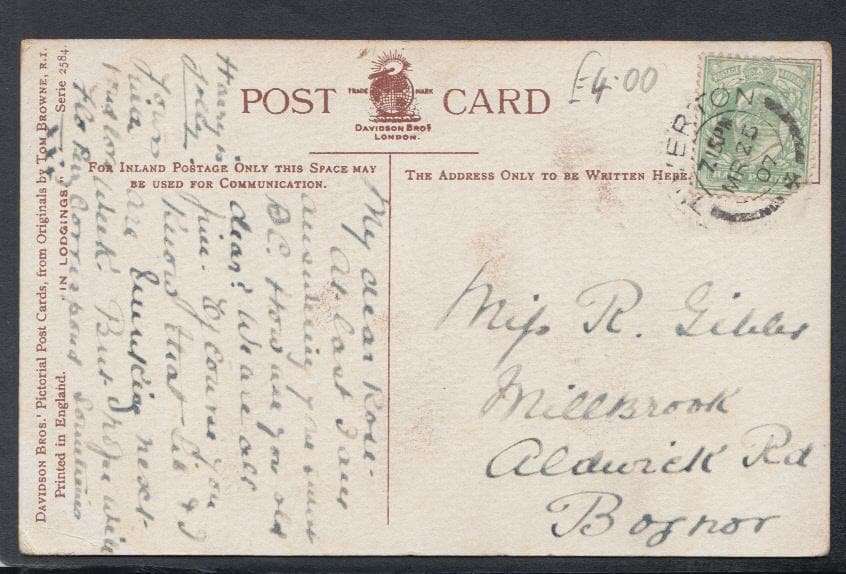 POST CARD
TRADE MARK
DAVIDSON BROS
LONDON.
£4.00
FOR INLAND POSTAGE ONLY THIS SPACE MAY
BE USED FOR COMMUNICATION.
THE ADDRESS ONLY TO BE WRITTEN HERE.
7.15PM
MR 25
07
DAVIDSON BROS.' Pictorial Post Cards, from Originals by TOM BROWNE, R.I.
Printed in England. "IN LODGINGS" Serie 2584.
My dear Rose-
At last I am
answering your sweet
P.C. How are you old
dear? We are all
fine. Of course you
know that Lil & I
are next
week. But I hope we'll
correspond sometimes
Yours
Harry is
jolly
Miss R. Gibbs
Millbrook
Aldwick Rd
Bognor